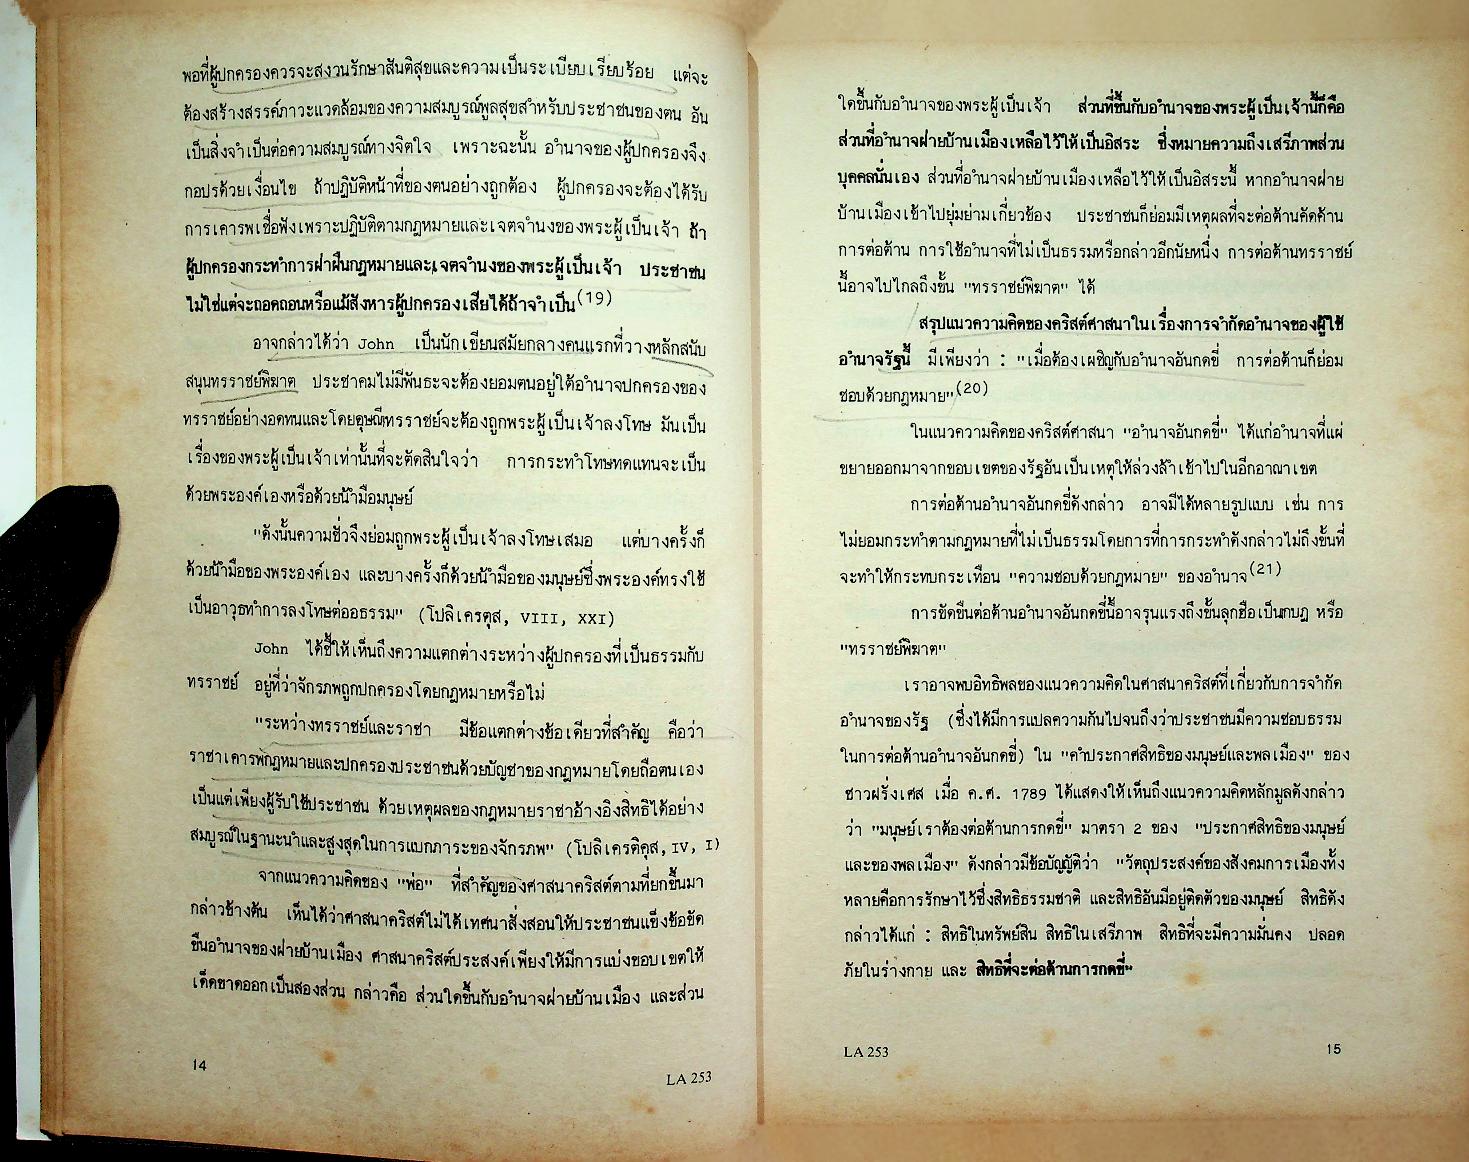 พอที่ผู้ปกครองควรจะสงวนรักษาสันติสุขและความเป็นระเบียบเรียบร้อย แต่จะ
ต้องสร้างสรรค์ภาวะแวดล้อมของความสมบูรณ์พูลสุขสำหรับประชาชนของตน อัน
เป็นสิ่งจำเป็นต่อความสมบูรณ์ทางจิตใจ เพราะฉะนั้น อำนาจของผู้ปกครองจึง
กอปรด้วยเงื่อนไข ถ้าปฏิบัติหน้าที่ของตนอย่างถูกต้อง ผู้ปกครองจะต้องได้รับ
การเคารพเชื่อฟังเพราะปฏิบัติตามกฎหมายและเจตจำนงของพระผู้เป็นเจ้า ถ้า
ผู้ปกครองกระทำการฝ่าฝืนกฎหมายและเจตจำนงของพระผู้เป็นเจ้า ประชาชน
ไม่ใช่แต่จะถอดถอนหรือแม้สังหารผู้ปกครองเสียได้ถ้าจำเป็น(19)
อาจกล่าวได้ว่า John เป็นนักเขียนสมัยกลางคนแรกที่วางหลักสนับ
สนุนทรราชย์พิฆาต ประชาคมไม่มีพันธะจะต้องยอมตนอยู่ใต้อำนาจปกครองของ
ทรราชย์อย่างอดทนและโดยดุษณีทรราชย์จะต้องถูกพระผู้เป็นเจ้าลงโทษ มันเป็น
เรื่องของพระผู้เป็นเจ้าเท่านั้นที่จะตัดสินใจว่า การกระทำโทษทดแทนจะเป็น
ด้วยพระองค์เองหรือด้วยน้ำมือมนุษย์
"ดังนั้นความชั่วจึงย่อมถูกพระผู้เป็นเจ้าลงโทษเสมอ แต่บางครั้งก็
ด้วยน้ำมือของพระองค์เอง และบางครั้งก็ด้วยน้ำมือของมนุษย์ซึ่งพระองค์ทรงใช้
เป็นอาวุธทำการลงโทษต่ออธรรม" (โปลิเครตุส, VIII, XXI)
John ได้ชี้ให้เห็นถึงความแตกต่างระหว่างผู้ปกครองที่เป็นธรรมกับ
ทรราชย์ อยู่ที่ว่าจักรภพถูกปกครองโดยกฎหมายหรือไม่
"ระหว่างทรราชย์และราชา มีข้อแตกต่างข้อเดียวที่สำคัญ คือว่า
ราชาเคารพกฎหมายและปกครองประชาชนด้วยบัญชาของกฎหมายโดยถือตนเอง
เป็นแต่เพียงผู้รับใช้ประชาชน ด้วยเหตุผลของกฎหมายราชาอ้างอิงสิทธิได้อย่าง
สมบูรณ์ในฐานะนำและสูงสุดในการแบกภาระของจักรภพ" (โปลิเครติคุส, IV, I)
จากแนวความคิดของ "พ่อ" ที่สำคัญของศาสนาคริสต์ตามที่ยกขึ้นมา
กล่าวข้างต้น เห็นได้ว่าศาสนาคริสต์ไม่ได้เทศนาสั่งสอนให้ประชาชนแข็งข้อขัด
ขืนอำนาจของฝ่ายบ้านเมือง ศาสนาคริสต์ประสงค์เพียงให้มีการแบ่งขอบเขตให้
เด็ดขาดออกเป็นสองส่วน กล่าวคือ ส่วนใดขึ้นกับอำนาจฝ่ายบ้านเมือง และส่วน
14
LA 253
ใดขึ้นกับอำนาจของพระผู้เป็นเจ้า ส่วนที่ขึ้นกับอำนาจของพระผู้เป็นเจ้านี้ก็คือ
ส่วนที่อำนาจฝ่ายบ้านเมืองเหลือไว้ให้เป็นอิสระ ซึ่งหมายความถึงเสรีภาพส่วน
บุคคลนั่นเอง ส่วนที่อำนาจฝ่ายบ้านเมืองเหลือไว้ให้เป็นอิสระนี้ หากอำนาจฝ่าย
บ้านเมืองเข้าไปยุ่มย่ามเกี่ยวข้อง ประชาชนก็ย่อมมีเหตุผลที่จะต่อต้านคัดค้าน
การต่อต้าน การใช้อำนาจที่ไม่เป็นธรรมหรือกล่าวอีกนัยหนึ่ง การต่อต้านทรราชย์
นี้อาจไปไกลถึงขั้น "ทรราชย์พิฆาต" ได้
สรุปแนวความคิดของคริสต์ศาสนาในเรื่องการจำกัดอำนาจของผู้ใช้
อำนาจรัฐนี้ มีเพียงว่า : "เมื่อต้องเผชิญกับอำนาจอันกดขี่ การต่อต้านก็ย่อม
ชอบด้วยกฎหมาย"(20)
ในแนวความคิดของคริสต์ศาสนา "อำนาจอันกดขี่" ได้แก่อำนาจที่แผ่
ขยายออกมาจากขอบเขตของรัฐอันเป็นเหตุให้ล่วงล้ำเข้าไปในอีกอาณาเขต
การต่อต้านอำนาจอันกดขี่ดังกล่าว อาจมีได้หลายรูปแบบ เช่น การ
ไม่ยอมกระทำตามกฎหมายที่ไม่เป็นธรรมโดยการที่การกระทำดังกล่าวไม่ถึงขั้นที่
จะทำให้กระทบกระเทือน "ความชอบด้วยกฎหมาย" ของอำนาจ(21)
การขัดขืนต่อต้านอำนาจอันกดขี่นี้อาจรุนแรงถึงขั้นลุกฮือเป็นกบฏ หรือ
"ทรราชย์พิฆาต"
เราอาจพบอิทธิพลของแนวความคิดในศาสนาคริสต์ที่เกี่ยวกับการจำกัด
อำนาจของรัฐ (ซึ่งได้มีการแปลความกันไปจนถึงว่าประชาชนมีความชอบธรรม
ในการต่อต้านอำนาจอันกดขี่) ใน "คำประกาศสิทธิของมนุษย์และพลเมือง" ของ
ชาวฝรั่งเศส เมื่อ ค.ศ. 1789 ได้แสดงให้เห็นถึงแนวความคิดหลักมูลดังกล่าว
ว่า "มนุษย์เราต้องต่อต้านการกดขี่" มาตรา 2 ของ "ประกาศสิทธิของมนุษย์
และของพลเมือง" ดังกล่าวมีข้อบัญญัติว่า "วัตถุประสงค์ของสังคมการเมืองทั้ง
หลายคือการรักษาไว้ซึ่งสิทธิธรรมชาติ และสิทธิอันมีอยู่ติดตัวของมนุษย์ สิทธิดัง
กล่าวได้แก่ : สิทธิในทรัพย์สิน สิทธิในเสรีภาพ สิทธิที่จะมีความมั่นคง ปลอด
ภัยในร่างกาย และ สิทธิที่จะต่อต้านการกดขี่"
LA 253
15